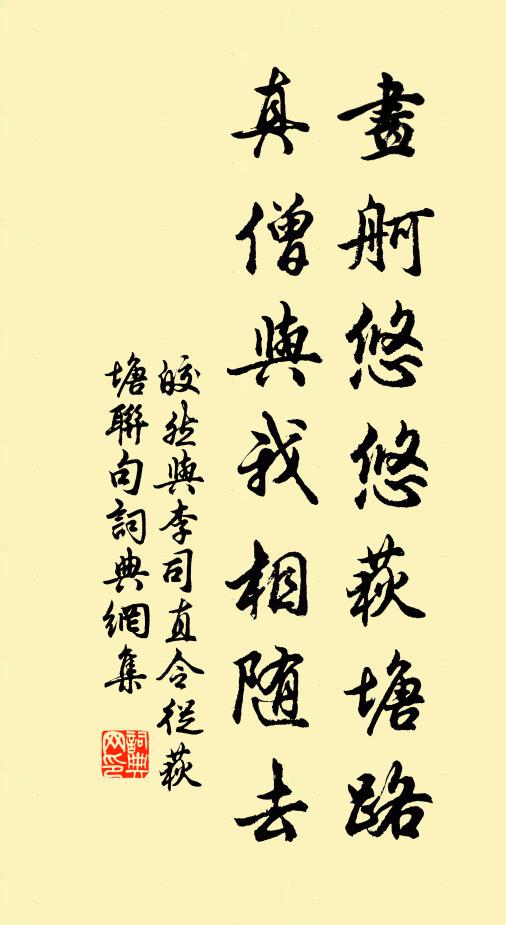 畫舸悠悠荻塘路
真僧與我相随去
皎然與李司直令從荻
塘聯句詞典網集
詞典
网印